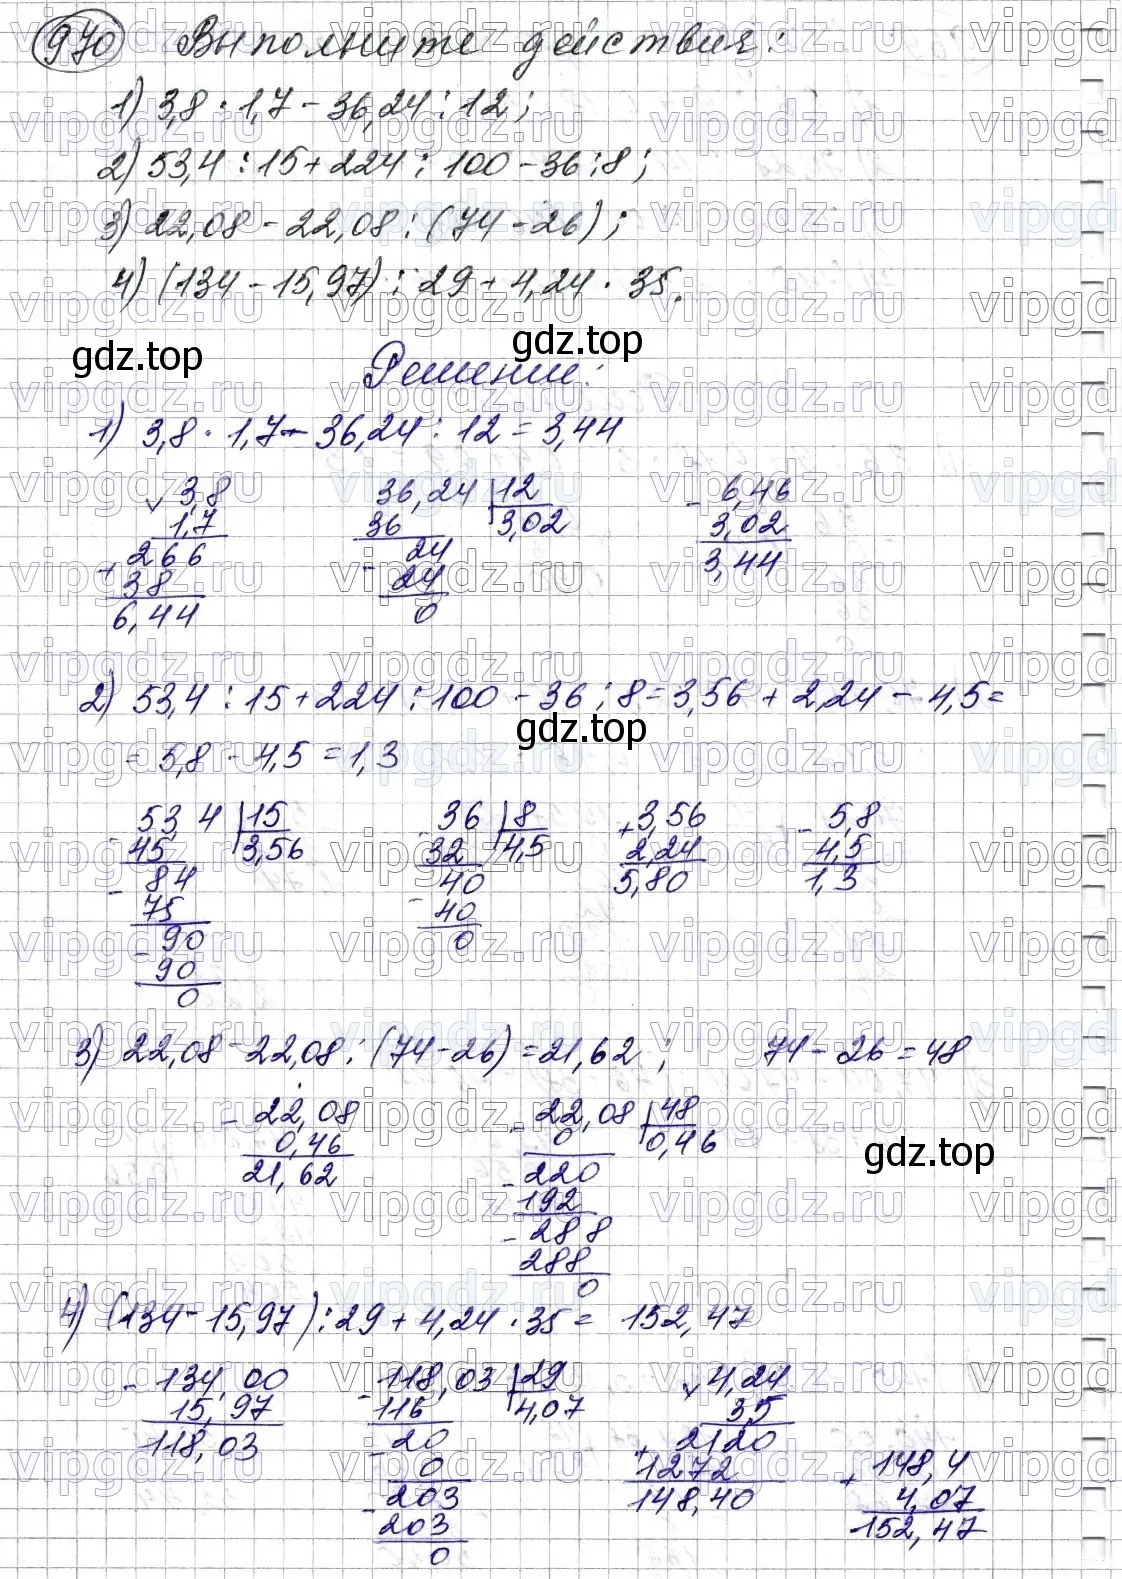 970 Выполните действия:
1) 3,8 · 1,7 - 36,24 : 12;
2) 53,4 : 15 + 224 : 100 - 36 : 8;
3) 22,08 - 22,08 : (74 - 26);
4) (134 - 15,97) : 29 + 4,24 · 35.
gdz.top gdz.top
Решение:
1) 3,8 · 1,7 - 36,24 : 12 = 3,44
3,8 36,24 12 - 6,46
1,7 36 3,02 3,02
+ 266 24 3,44
38 - 24
6,44 0
2) 53,4 : 15 + 224 : 100 - 36 : 8 = 3,56 + 2,24 - 4,5 =
gdz.top
= 5,8 - 4,5 = 1,3
- 53,4 15 - 36 8 + 3,56 - 5,8
45 3,56 32 4,5 2,24 4,5
- 84 40 5,80 1,3
75 - 40
- 90 0
90
0
3) 22,08 - 22,08 : (74 - 26) = 21,62 ; 74 - 26 = 48
- 22,08 - 22,08 48
0,46 0 0,46
21,62 - 220
gdz.top
192
- 288
288
0
4) (134 - 15,97) : 29 + 4,24 · 35 = 152,47
- 134,00 - 118,03 29 4,24
15,97 116 4,07 35
118,03 - 20 + 2120
0 1272 + 148,4
- 203 148,40 4,07
203 152,47
0